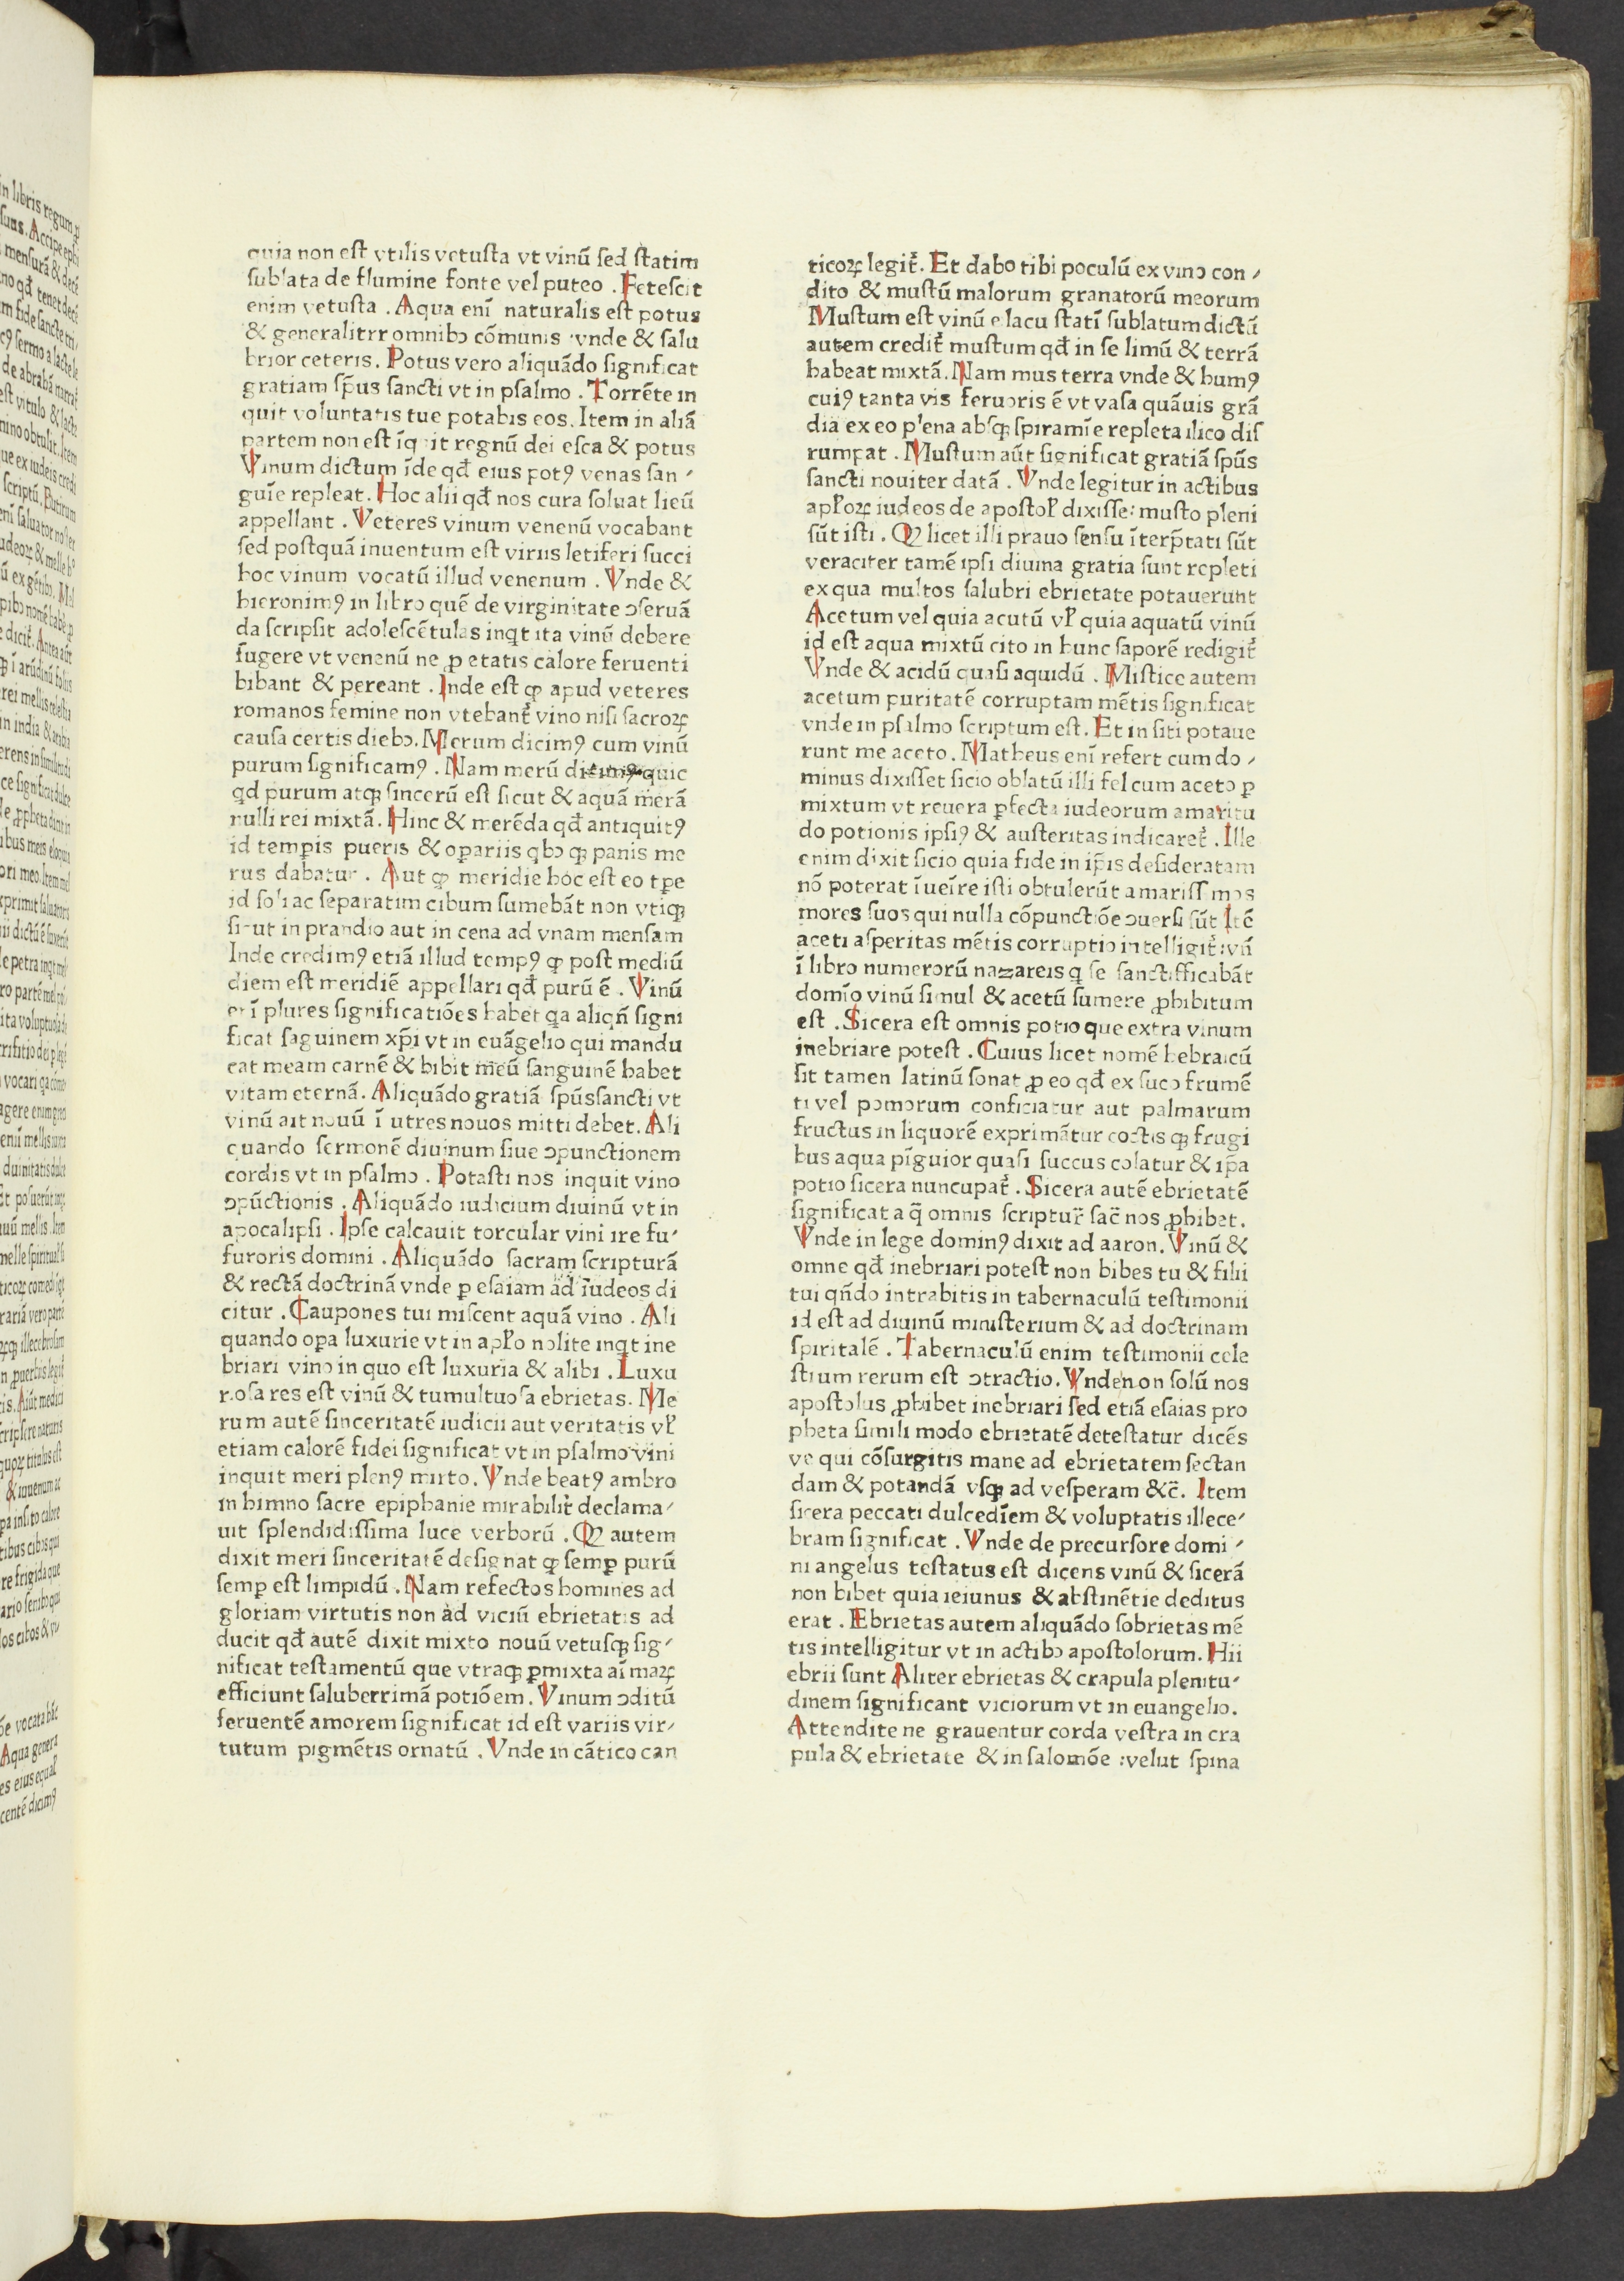 quia non est vtilis vetusta vt vinū sed statim
sublata de flumine fonte vel puteo . Fetescit
enim vetusta . Aqua enī naturalis est potus
& generalitrr omnibꝫ cōmunis vnde & salu
brior ceteris . Potus vero aliquādo significat
gratiam sp̄us sancti vt in psalmo . Torrēte in
quit voluntatis tue potabis eos . Item in aliā
partem non est īquit regnū dei esca & potus
Vinum dictum īde qđ eius potꝯ venas san ⸗
guīe repleat . Hoc alii qđ nos cura soluat lieū
appellant . Veteres vinum venenū vocabant
sed postquā inuentum est virus letiferi succi
hoc vinum vocatū illud venenum . Vnde &
hieronimꝯ in libro quē de virginitate ꝯseruā
da scripsit adolescētulas inqt ita vinū debere
fugere vt venenū ne ꝓ etatis calore feruenti
bibant & pereant . Inde est ꝙ apud veteres
romanos femine non vtebant᷑ vino nisi sacroꝝ
causa certis diebꝫ . Merum dicimꝯ cum vinū
purum significamꝯ . Nam merū quic
qd purum atqꝫ sincerū est sicut & aquā merā
nulli rei mixtā . Hinc & merēda qđ antiquitꝯ
id temꝑis pueris & oꝑariis qbꝫ ꝙ panis me
rus dabatur . Aut ꝙ meridie hoc est eo tꝑe
id soli ac separatim cibum sumebāt non vtiqꝫ
sicut in prandio aut in cena ad vnam mensam
Inde credimꝯ etiā illud tempꝯ ꝙ post mediū
diem est meridiē appellari qđ purū ē . Vinū
enī plures significatiōes habet qa aliqn̄ signi
ficat saguinem xp̄i vt in euāgelio qui mandu
cat meam carnē & bibit meū sanguinē habet
vitam eternā . Aliquādo gratiā spūssancti vt
vinū ait nouū ī utres nouos mitti debet . Ali
quando sermonē diuinum siue ꝯpunctionem
cordis vt in psalmo . Potasti nos inquit vino
ꝯpūctionis . Aliquādo iudicium diuinū vt in
apocalipsi . Ipse calcauit torcular vini ire fu⸗
furoris domini . Aliquādo sacram scripturā
& rectā doctrinā vnde ꝑ esaiam ad iudeos di
citur . Caupones tui miscent aquā vino . Ali
quando oꝑa luxurie vt in apl̄o nolite inqt ine
briari vino in quo est luxuria & alibi . Luxu
riosa res est vinū & tumultuosa ebrietas . Me
rum autē sinceritatē iudicii aut veritatis vl̄
etiam calorē fidei significat vt in psalmo vini
inquit meri plenꝯ mixto . Vnde beatꝯ ambro
in himno sacre epiphanie mirabilit᷑ declama⸗
uit splendidissima luce verborū . Qꝫ autem
dixit meri sinceritatē designat ꝙ semꝑ purū
semꝑ est limpidū . Nam refectos homines ad
gloriam virtutis non ad viciū ebrietatis ad
ducit qđ autē dixit mixto nouū vetusqꝫ sig⸗
nificat testamentū que vtraqꝫ ꝑmixta aīmaꝝ
efficiunt saluberrimā potiōem . Vinum ꝯditū
feruentē amorem significat id est variis vir⸗
tutum pigmētis ornatū . Vnde in cātico can
ticoꝝ legit᷑ . Et dabo tibi poculū ex vino con ⸗
dito & mustū malorum granatorū meorum
Mustum est vinū e lacu statī sublatum dictū
autem credit᷑ mustum qđ in se limū & terrā
habeat mixtā . Nam mus terra vnde & humꝯ
cuiꝯ tanta vis feruoris ē vt vasa quāuis grā
dia ex eo plena absqꝫ spiramīe repleta ilico dis
rumpat . Mustum aūt significat gratiā spūs
sancti nouiter datā . Vnde legitur in actibus
apl̄oꝝ iudeos de apostol̄ dixisse : musto pleni
sūt isti . Qꝫ licet illi prauo sensu īterp̄tati sūt
veraciter tamē ipsi diuina gratia sunt repleti
ex qua multos salubri ebrietate potauerunt
Acetum vel quia acutū vl̄ quia aquatū vinū
id est aqua mixtū cito in hunc saporē redigit᷑
Vnde & acidū quasi aquidū . Mistice autem
acetum puritatē corruptam mētis significat
vnde in psalmo scriptum est . Et in siti potaue
runt me aceto . Matheus enī refert cum do ⸗
minus dixisset sicio oblatū illi fel cum aceto ꝑ
mixtum vt reuera ꝑfecta iudeorum amaritu
do potionis ipsiꝯ & austeritas indicaret᷑ . Ille
enim dixit sicio quia fide in ip̄is desideratam
nō poterat īueīre isti obtulerūt amarissimos
mores suos qui nulla cōpunctiōe ꝯuersi sūt Itē
aceti asperitas mētis corruptio intelligit᷑ : vn̄
ī libro numerorū nazareis q se sanctifficabāt
domīo vinū simul & acetū sumere ꝓhibitum
est . Sicera est omnis potio que extra vinum
inebriare potest . Cuius licet nomē hebraicū
sit tamen latinū sonat ꝓ eo qđ ex suco frumē
ti vel pomorum conficiatur aut palmarum
fructus in liquorē exprimātur coctis qꝫ frugi
bus aqua pīguior quasi succus colatur & ip̄a
potio sicera nuncupat᷑ . Sicera autē ebrietatē
significat a q̄ omnis scriptur̄ sac̄ nos ꝓhibet .
Vnde in lege dominꝯ dixit ad aaron . Vinū &
omne qđ inebriari potest non bibes tu & filii
tui qn̄do intrabitis in tabernaculū testimonii
id est ad diuinū ministerium & ad doctrinam
spiritalē . Tabernaculū enim testimonii cele
stium rerum est ꝯtractio . Vnde non solū nos
apostolus ꝓhibet inebriari sed etiā esaias pro
pheta simili modo ebrietatē detestatur dicēs
ve qui cōsurgitis mane ad ebrietatem sectan
dam & potandā vsqꝫ ad vesperam &c̄ . Item
sicera peccati dulcedīem & voluptatis illece⸗
bram significat . Vnde de precursore domi ⸗
ni angelus testatus est dicens vinū & sicerā
non bibet quia ieiunus & abstinētie deditus
erat . Ebrietas autem aliquādo sobrietas mē
tis intelligitur vt in actibꝫ apostolorum . Hii
ebrii sunt Aliter ebrietas & crapula plenitu⸗
dinem significant viciorum vt in euangelio .
Attendite ne grauentur corda vestra in cra
pula & ebrietate & in salomōe : velut spina